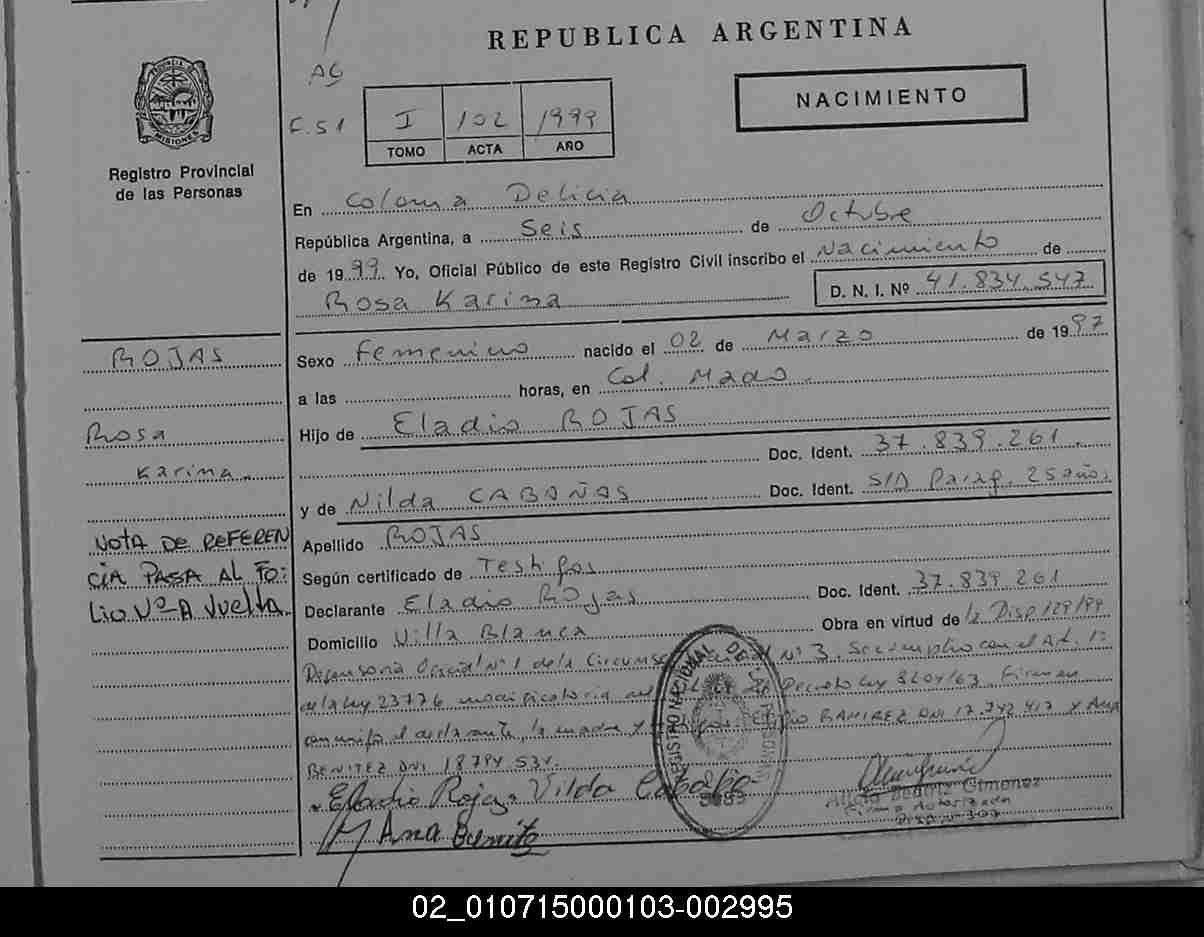 REPUBLICA ARGENTINA
PROVINCIA DE
MISIONES
Registro Provincial
de las Personas
AG
F. 51
I 102 1999
TOMO ACTA AÑO
NACIMIENTO
En Colonia Delicia
República Argentina, a Seis de Octubre
de 1999. Yo, Oficial Público de este Registro Civil inscribo el Nacimiento de
Rosa Karina D. N. I. Nº 41.834.547
ROJAS
Rosa
Karina
NOTA DE REFEREN
CIA PASA AL FO:
Lio Nº A Vuelta.
Sexo Femenino nacido el 02 de Marzo de 1997
a las horas, en Col. Mado
Hijo de Eladio ROJAS
Doc. Ident. 37.839.261
y de Nilda CABAÑAS Doc. Ident. S/D Parag. 25 años
Apellido ROJAS
Según certificado de Testigos
Declarante Eladio Rojas Doc. Ident. 37.839.261
Domicilio Villa Blanca Obra en virtud de la Disp 129/99
Defensoria Oficial Nº 1 de la Circunsc Nº 3. Se cumplio con el Art. 1º
de la Ley 23776 modificatoria del Decreto Ley 8204/63. Firman
conmigo el declarante, la madre y RAMIREZ DNI 17.742.417 y Ana
BENITEZ DNI 18.794.534.
Eladio Rojas Nilda Cabaña
Ana Benitez
REGISTRO NACIONAL DE
Alicia Beatriz Gimenez
Firma Autorizada